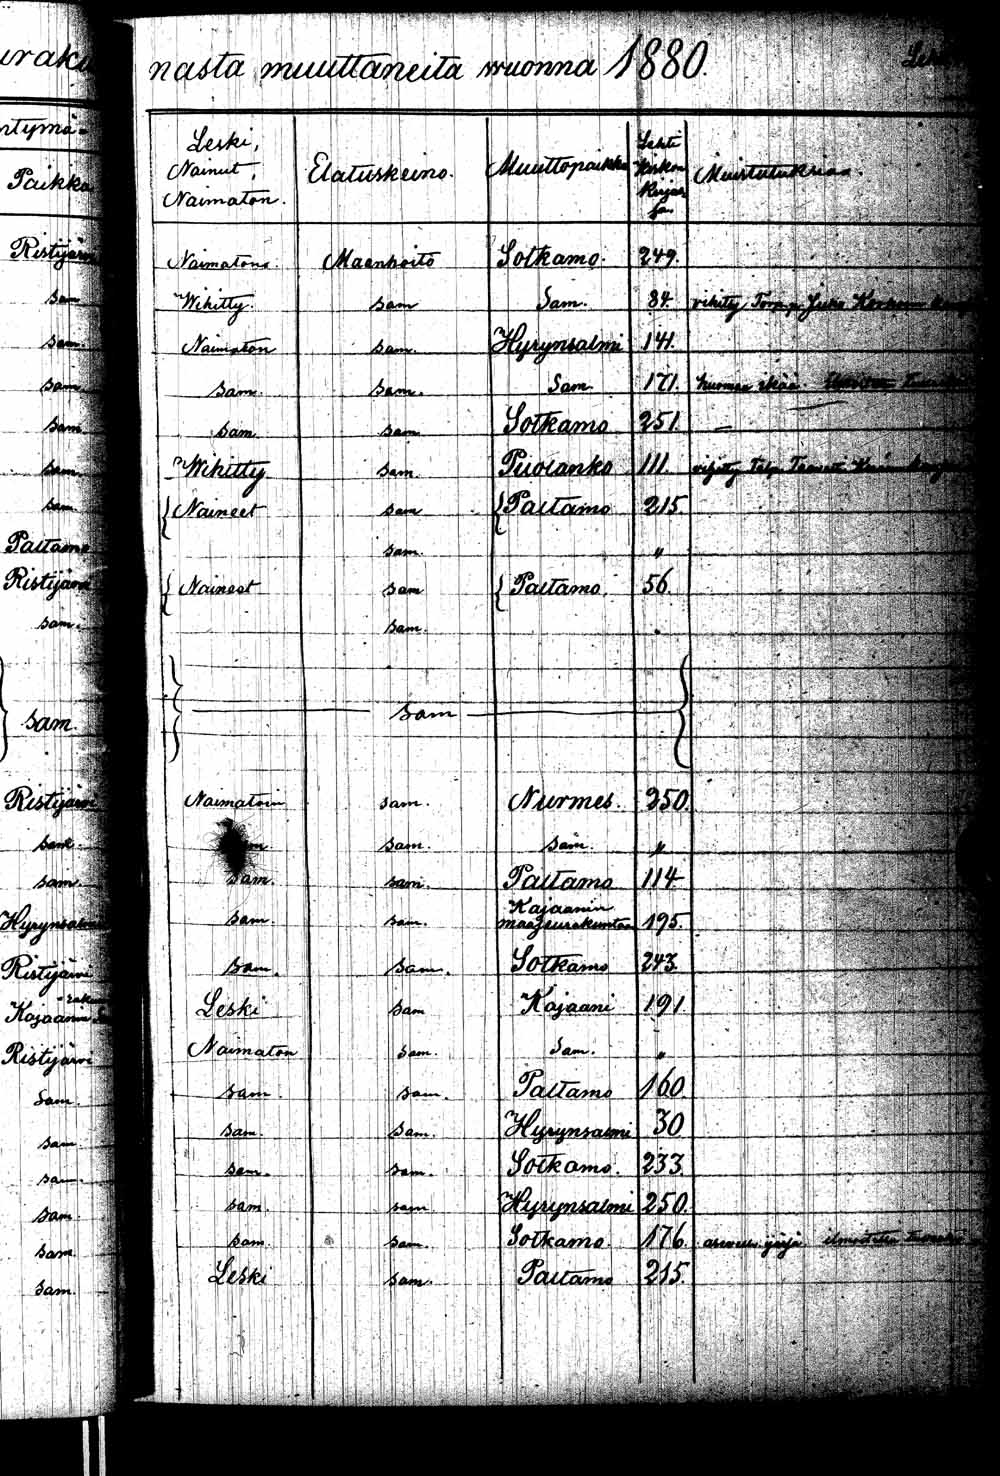 uraku nasta muuttaneita wuonna 1880.
ntymä-
Paikka
Leski, Nainut, Naimaton.
Elatuskeino.
Muuttopaikka
Lehti Kirkon Kirjas sa.
Muistutuksia.
Ristijärvi Naimatons. Maanhoito Sotkamo. 249.
sam Wihitty. sam Sam. 84. vihitty Torp. Juho
sam. Naimaton sam. Hyrynsalmi 141.
sam sam. sam. Sam. 171.
sam. sam. sam Sotkamo 251. —
sam Wihitty sam. Puolanko 111.
sam Naineet sam Paltamo 215
Paltamo sam. "
Ristijärvi Naineet sam Paltamo. 56.
sam. sam. "
sam. sam
Ristijärvi Naimatoin sam. Nurmes. 250.
sam. sam. sam. "
sam. sam. sam. Paltamo 114
Hyrynsalmi sam. sam. Kajaanin maaseurakuntaan 195.
Ristijärvi sam. sam. Sotkamo 243.
Kajaanin Leski sam Kajaani 191.
Ristijärvi Naimaton sam. Sam. "
Sam. sam. sam. Paltamo 160.
sam sam. sam. Hyrynsalmi 30
sam. sam. sam. Sotkamo. 233.
sam. sam. sam Hyrynsalmi 250.
sam. sam. sam. Sotkamo. 176.
sam. Leski sam. Paltamo 215.